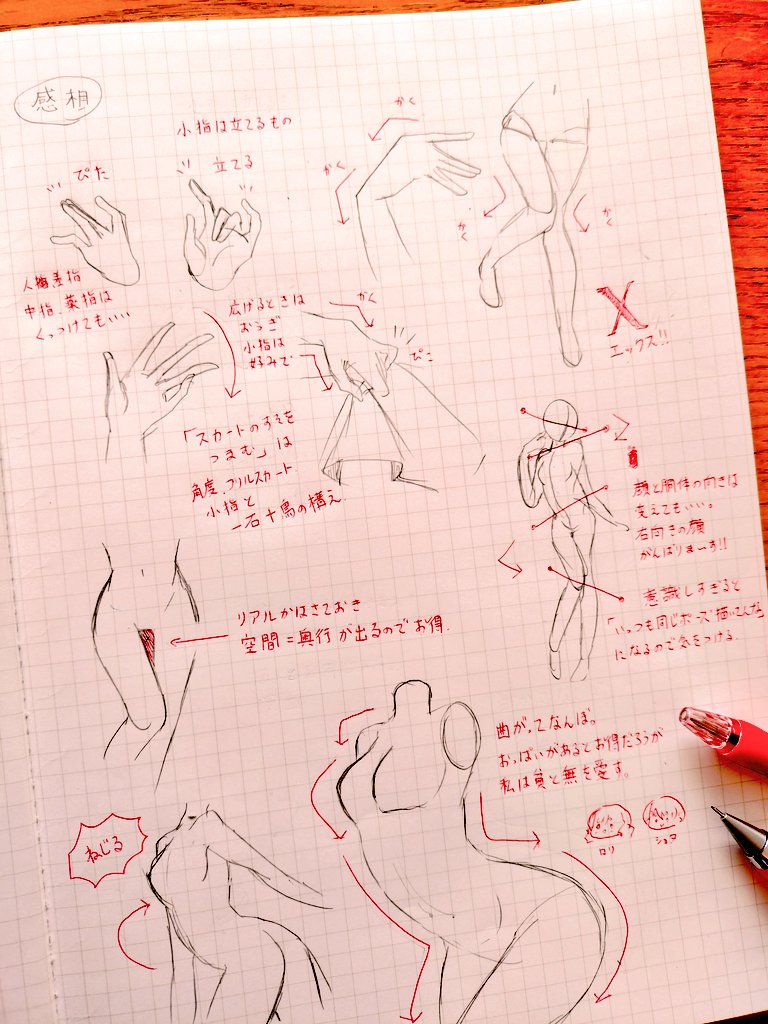 感想
小指は立てるもの
ぴた
立てる
かく
かく
かく
かく
人差指
中指、薬指は
くっつけてもいい
広げるときは
おうぎ
小指は
好みで
かく
ぴこ
X
エックス!!
「スカートのすそを
つまむ」は
角度、フリルスカート
小指と
一石十鳥の構え
顔と胴体の向きは
変えてもいい。
右向きの顔
がんばりまーす!!
意識しすぎると
「いっつも同じポーズ描いてんな」
になるので気をつける
リアルかはさておき
空間=奥行が出るのでお得.
曲がってなんぼ。
おっぱいがあるとお得だろうが
私は貧と無を愛す。
ロリ
ショタ
ねじる